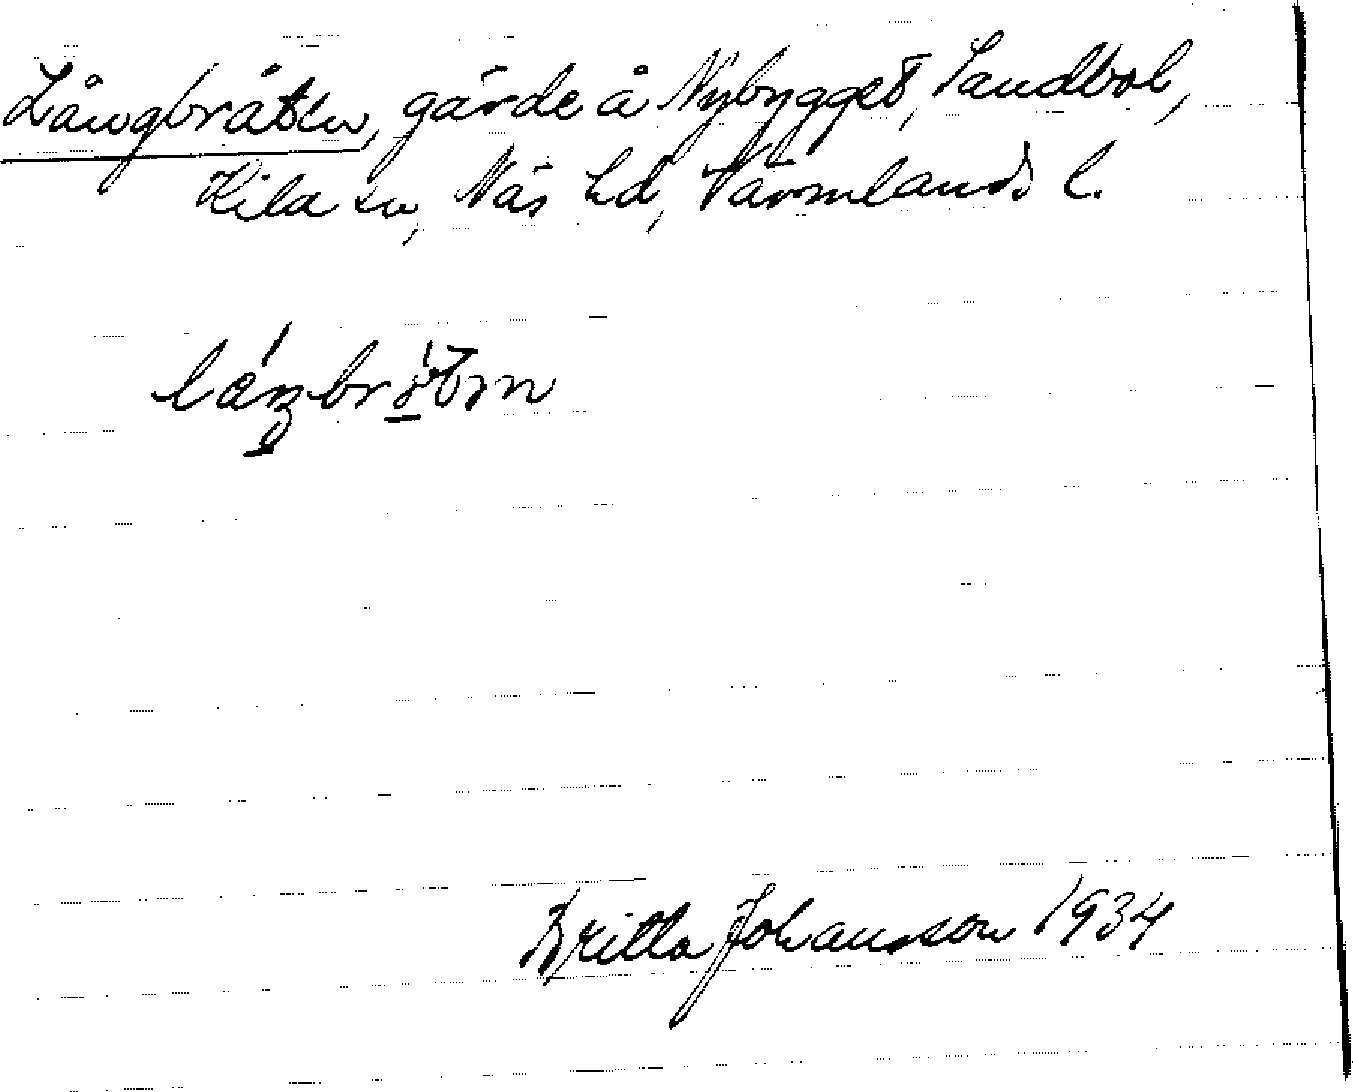 Långbråten, gärde å Nybygget, Sandbol,
Kila sn, Näs hd, Värmlands l.
Britta Johansson 1934